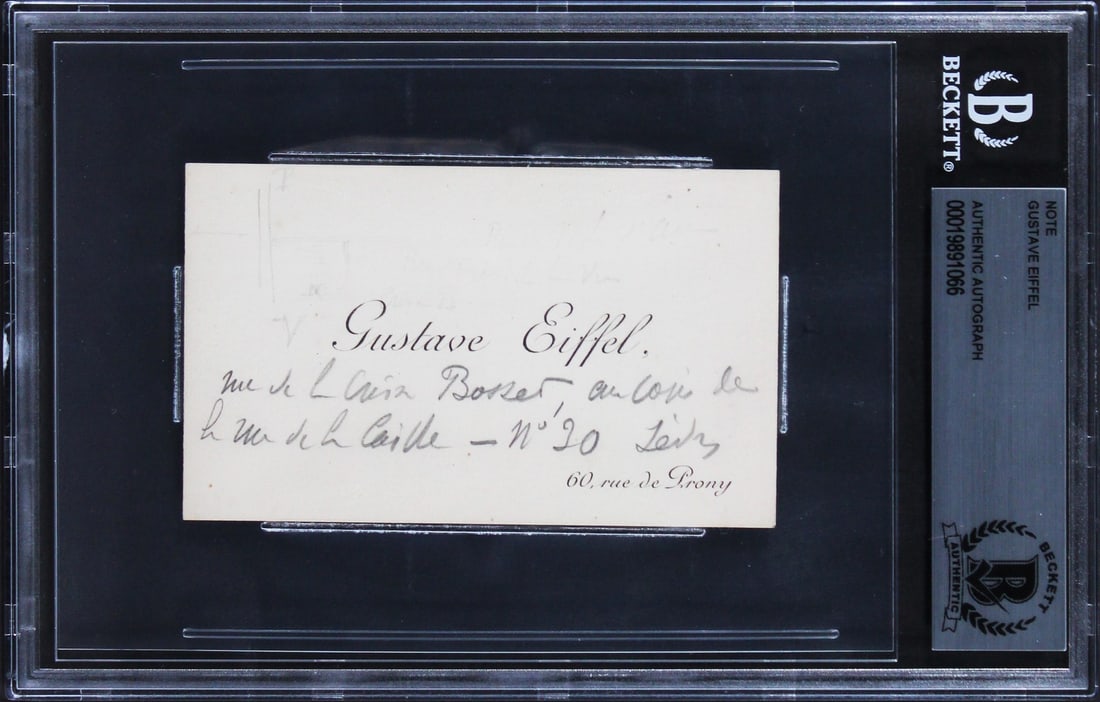 Gustave Eiffel.
rue de la Croix Bosset, au coin de
la rue de la Caille - N° 30 Sèvres
60, rue de Prony
BECKETT®
B
NOTE
GUSTAVE EIFFEL
AUTHENTIC AUTOGRAPH
00019891066
BECKETT
B
AUTHENTIC